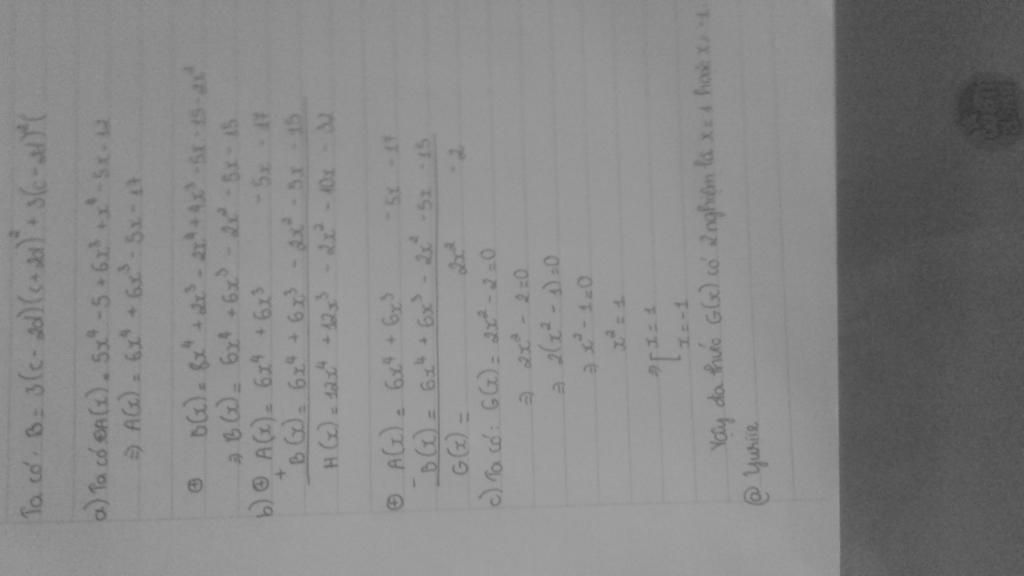 Ta có: B = 3(c - 2d)(c + 2d)² + 3(c - 2d)²(
a) Ta có A(x) = 5x⁴ - 5 + 6x³ + x⁴ - 5x - 12
⇒ A(x) = 6x⁴ + 6x³ - 5x - 17
⊕ B(x) = 8x⁴ + 2x³ - 2x⁴ + 4x³ - 5x - 15 - 2x²
⇒ B(x) = 6x⁴ + 6x³ - 2x² - 5x - 15
b) ⊕ A(x) = 6x⁴ + 6x³ - 5x - 17
+
B(x) = 6x⁴ + 6x³ - 2x² - 5x - 15
H(x) = 12x⁴ + 12x³ - 2x² - 10x - 32
⊕ A(x) = 6x⁴ + 6x³ - 5x - 17
-
B(x) = 6x⁴ + 6x³ - 2x² - 5x - 15
G(x) = 2x² - 2
c) Ta có: G(x) = 2x² - 2 = 0
⇒ 2x² - 2 = 0
⇒ 2(x² - 1) = 0
⇒ x² - 1 = 0
x² = 1
⇒ [ x = 1
x = -1
Vậy đa thức G(x) có 2 nghiệm là x = 1 hoặc x = -1
@ Yuriie